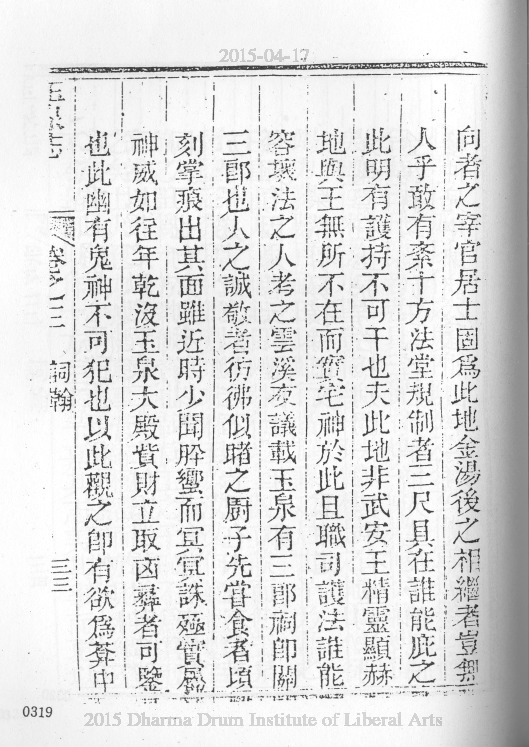 2015-04-17
向者之宰官居士固為此地金湯後之相繼者豈無
人乎敢有紊十方法堂規制者三尺具在誰能庇之
此明有護持不可干也夫此地非武安王精靈顯赫
地與王無所不在而實宅神於此且職司護法誰能
容壞法之人考之雲溪友議載玉泉有三郎祠即關
三郎也人之誠敬者彷彿似睹之厨子先嘗食者頃
刻掌痕出其面雖近時少聞肸蠁而冥冥誅殛實
神威如往年乾沒玉泉大殿貲財立取凶彞者可鑒
也此幽有鬼神不可犯也以此觀之即有欲為弃中
玉泉志 卷之三 詞翰 三三
0319
2015 Dharma Drum Institute of Liberal Arts